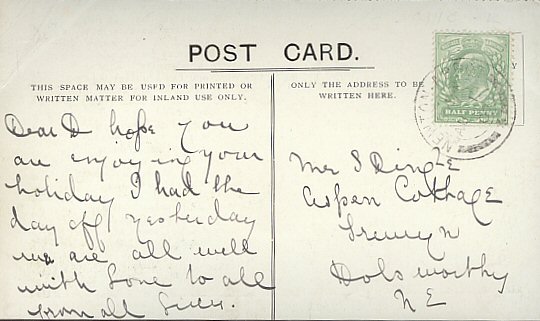 POST CARD.
THIS SPACE MAY BE USED FOR PRINTED OR
WRITTEN MATTER FOR INLAND USE ONLY.
ONLY THE ADDRESS TO BE
WRITTEN HERE.
HALF PENNY
Dear D hope you
are enjoying your
holiday I had the
day off yesterday
we are all well
with love to all
from all
Mrs S Dingle
Aspen Cottage
Holsworthy